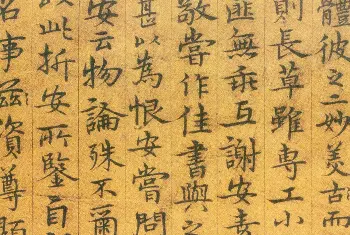 體彼之二妙美古而
則長草雖專工小
匪無乖互謝安素
敬嘗作佳書與之
甚以為恨安嘗問
安云物論殊不爾
以此折安所鑒自
名事茲資尊顯